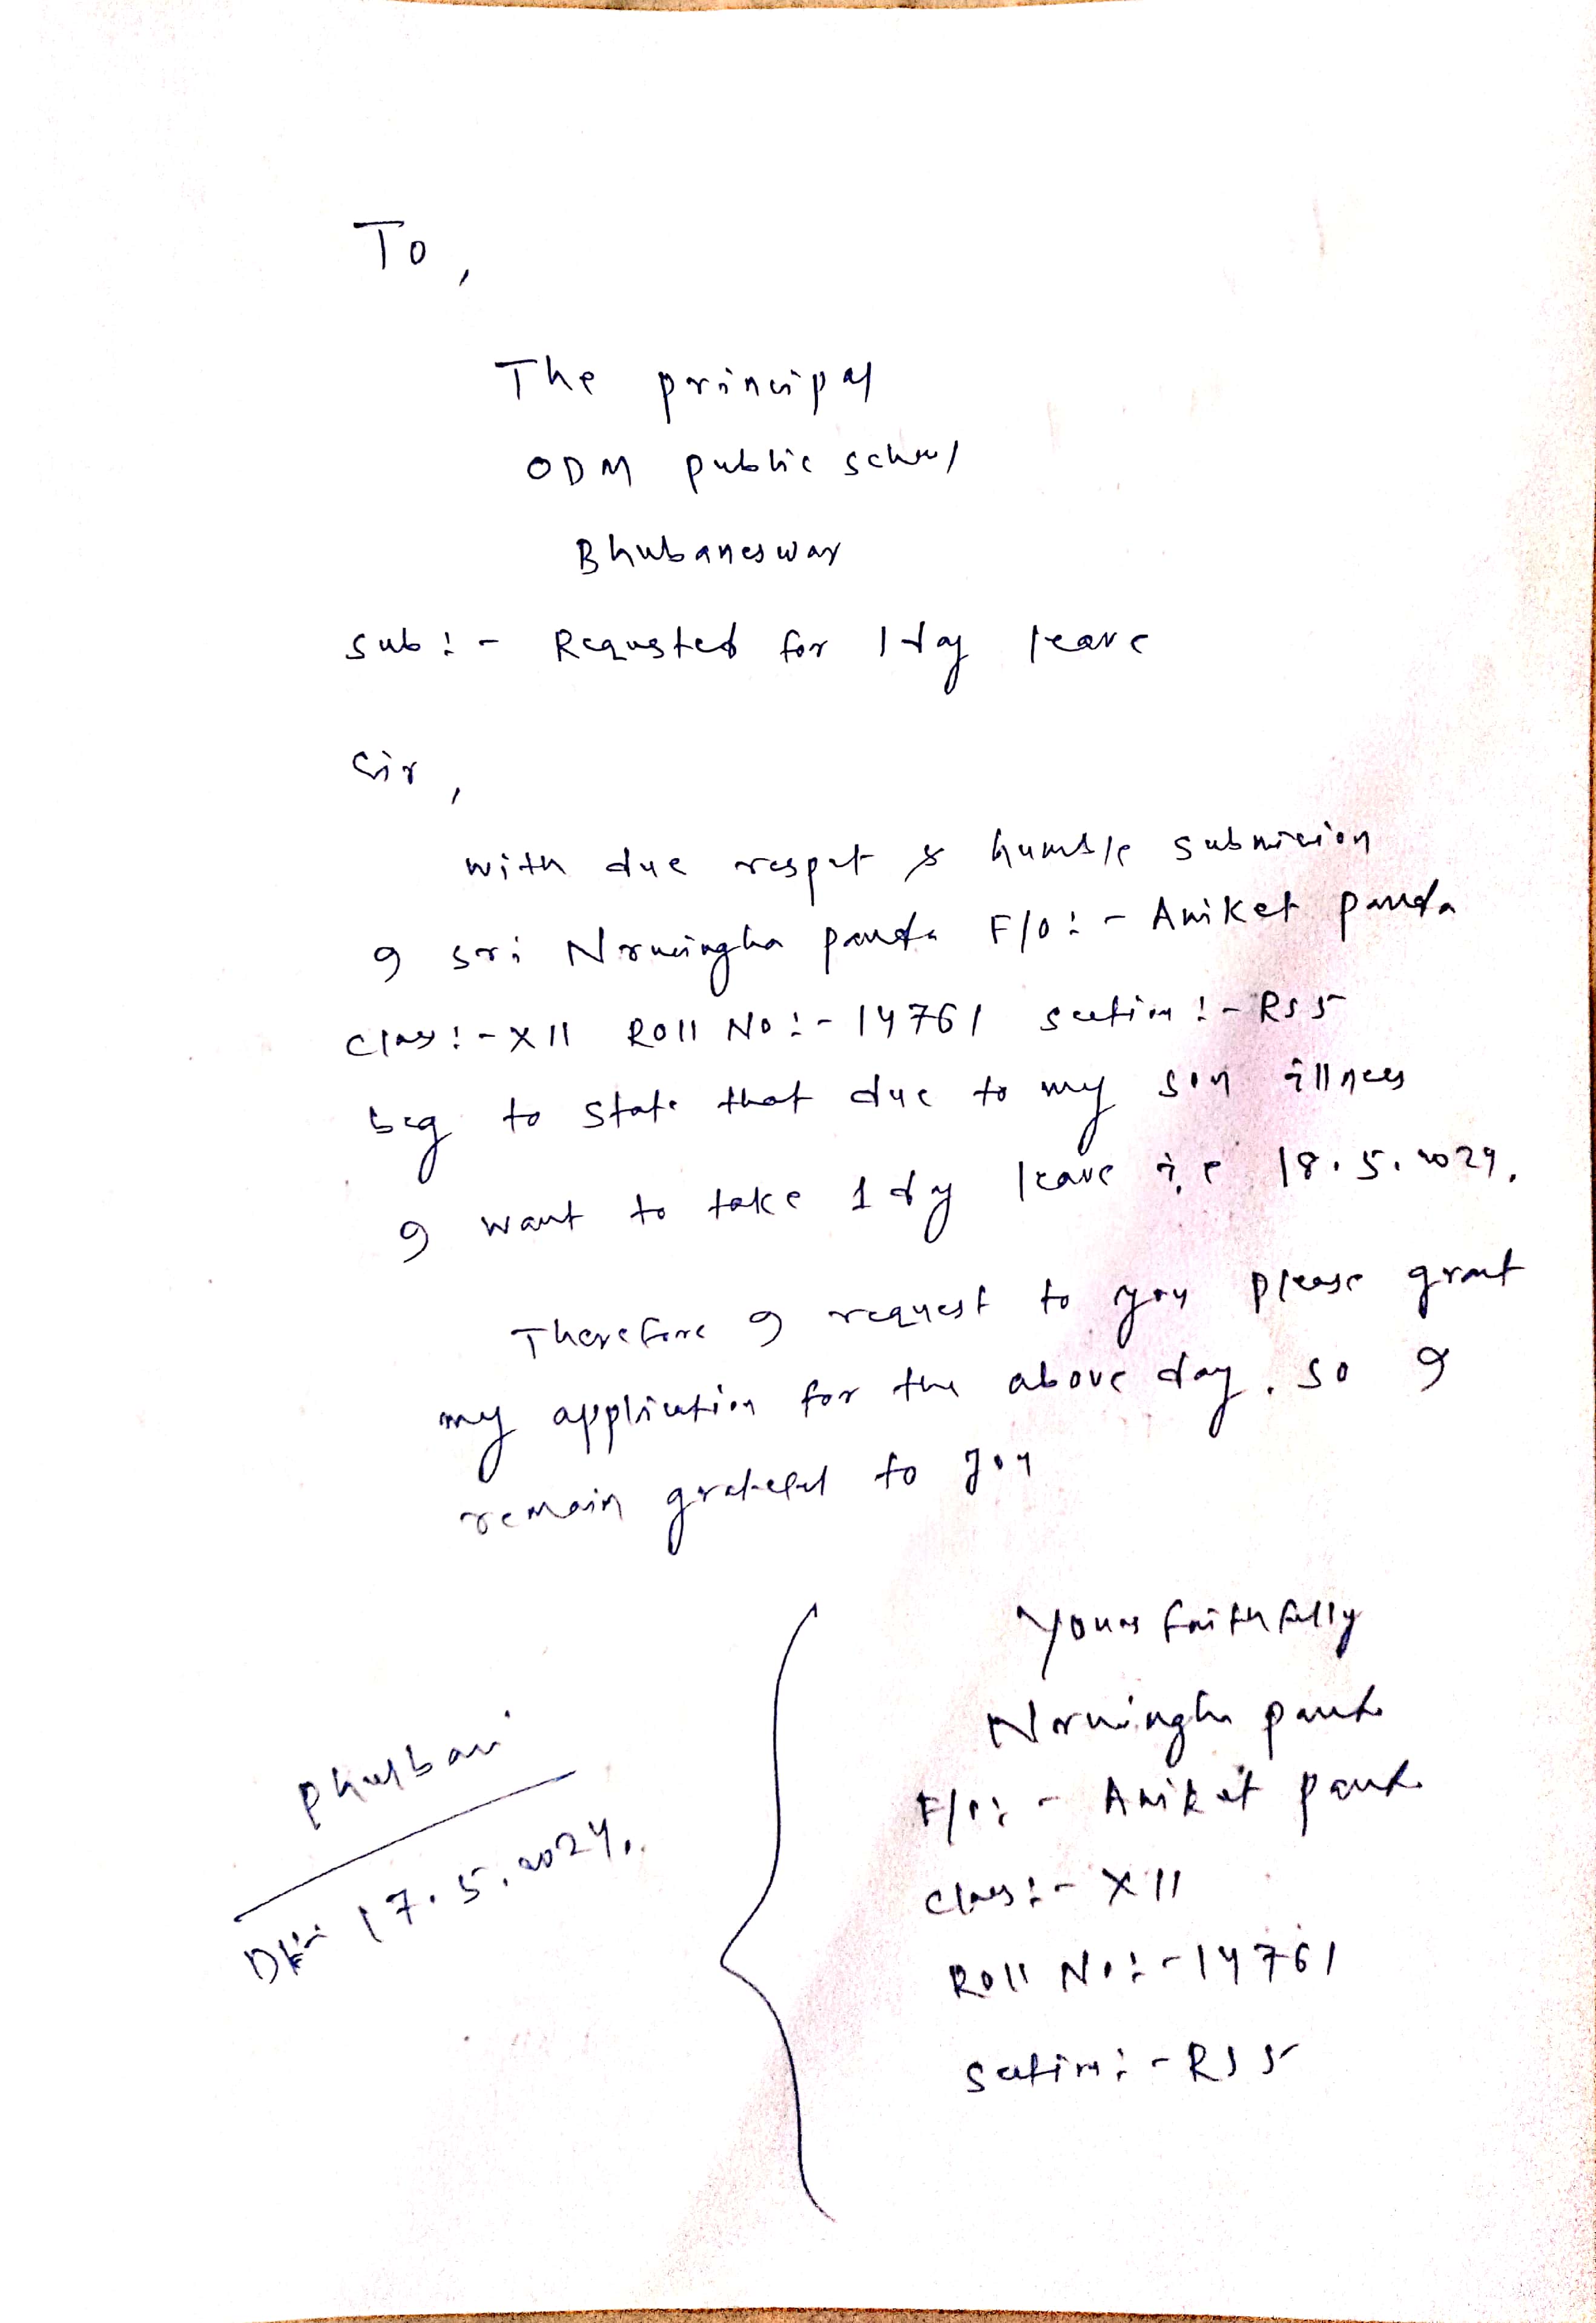 To,
The principal
ODM public school
Bhubaneswar
Sub:- Requsted for 1 day leave
Sir,
with due respect & humble submission
I sri Narsingha panda F/O:- Aniket panda
Class:- XII Roll No:- 14761 section:- RS5
beg to state that due to my son illness
I want to take 1 day leave i.e 18.5.2024.
Therefore I request to you please grant
my application for the above day. So I
remain grateful to you
Yours faithfully
Narsingha panda
F/O:- Aniket panda
Class:- XII
Roll No:- 14761
Section:- RS5
Phulbani
Dt:- 17.5.2024.